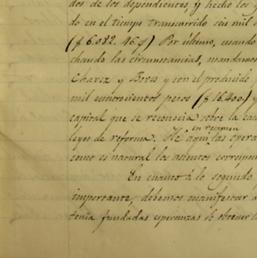 dos de los dependientes y hecho los
do en el tiempo transcurrido seis mil
($6,082. 46 ¢) Por último, cuando
chando las circunstancias, mandamos
Chavez y Boves y con el producido
mil cuatrocientos pesos ($16.400) y
capital que se reconocia sobre la
en resumen
leyes de reforma. Hé aquí las opera
como es natural los asientos correspon
En cuanto á lo segundo
importante, debemos manifestar á
tenia fundadas esperanzas de obtener